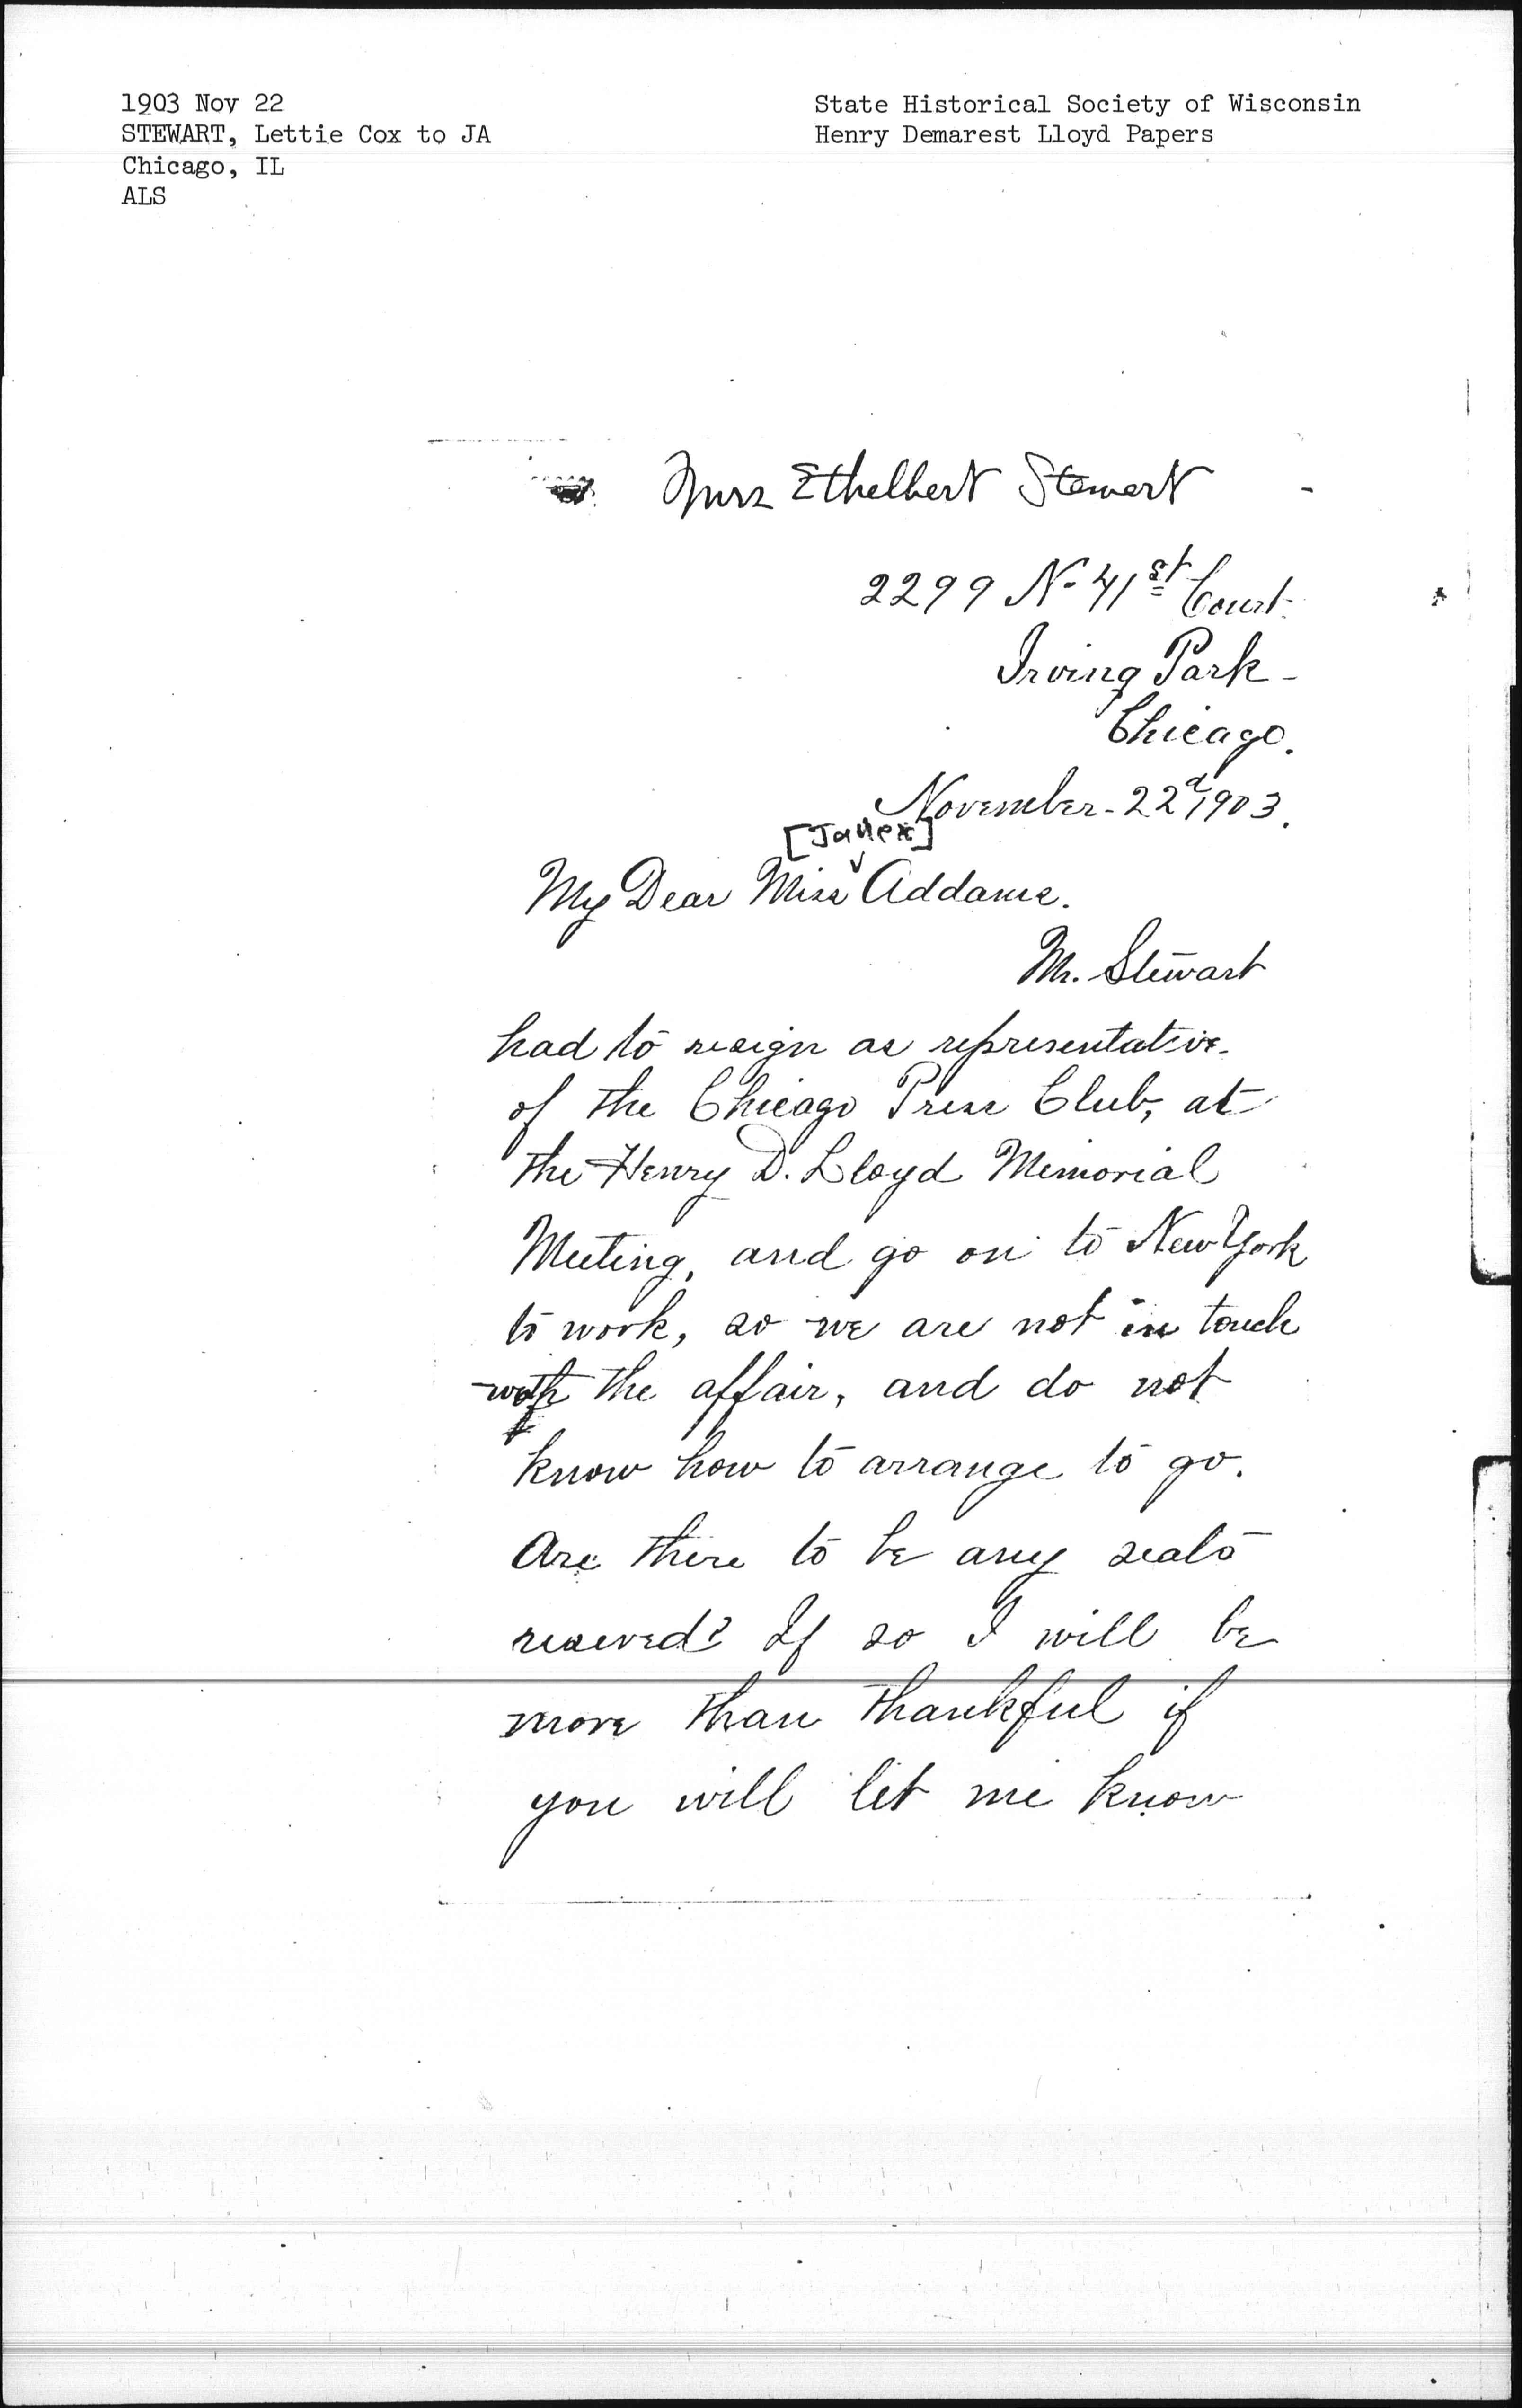 1903 Nov 22
STEWART, Lettie Cox to JA
Chicago, IL
ALS
State Historical Society of Wisconsin
Henry Demarest Lloyd Papers
Mrs Ethelbert Stewart
2299 N- 41st Court.
Irving Park -
Chicago.
November - 22d 1903.
[Jane]
My Dear Miss Addams.
Mr. Stewart
had to resign as representative
of the Chicago Press Club, at
the Henry D. Lloyd Memorial
Meeting, and go on to New York
to work, so we are not in touch
with the affair, and do not
know how to arrange to go.
Are there to be any seats
reserved? If so I will be
more than thankful if
you will let me know